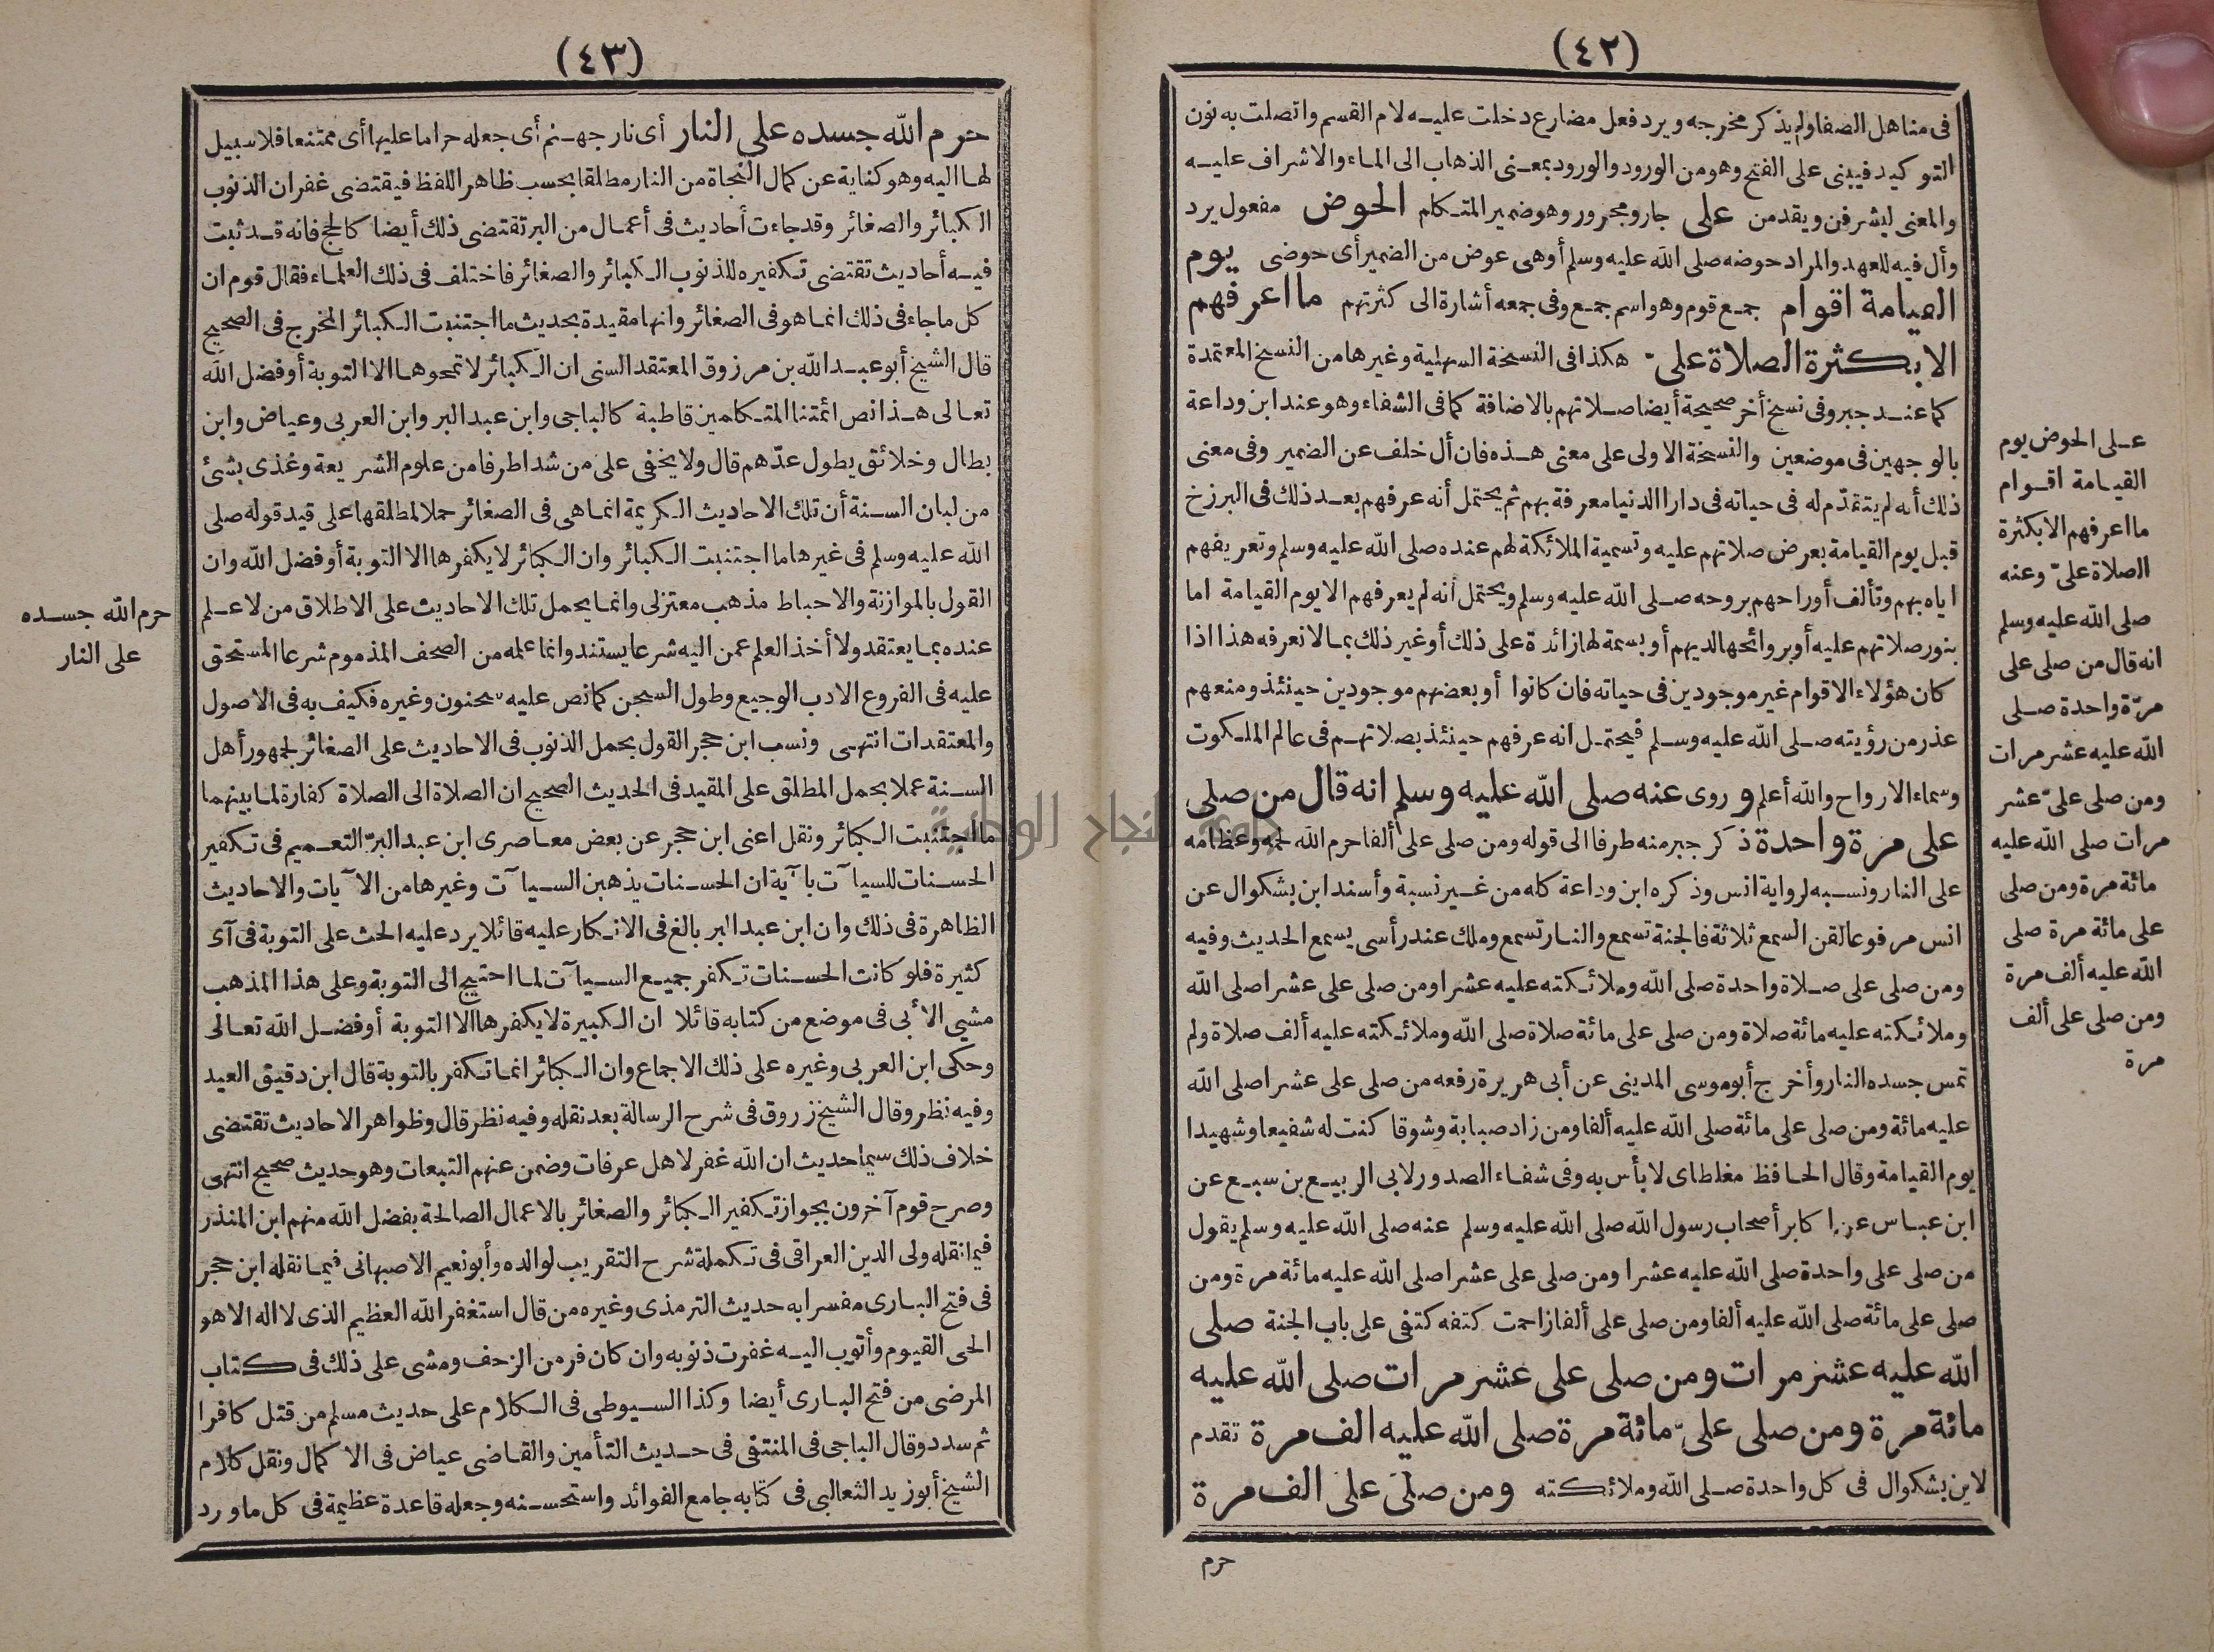 (٤٢)
فى مناهل الصفا ولم يذكر مخرجه ويرد فعل مضارع دخلت عليه لام القسم واتصلت به نون
التوكيد فيبنى على الفتح وهو من الورود والورود بمعنى الذهاب الى الماء والاشراف عليه
والمعنى ليشرفن ويقدمن على جار ومجرور وهو ضمير المتكلم الحوض مفعول يرد
وأل فيه للعهد والمراد حوضه صلى الله عليه وسلم أو هى عوض من الضمير أى حوضى يوم
القيامة اقوام جمع قوم وهو اسم جمع وفى جمعه أشارة الى كثرتهم ما اعرفهم
الا بكثرة الصلاة علىّ هكذا فى النسخة السهلية وغيرها من النسخ المعتمدة
كما عند جبر وفى نسخ أخر صحيحة أيضا صلاتهم بالاضافة كما فى الشفاء وهو عند ابن وداعة
بالوجهين فى موضعين والنسخة الاولى على معنى هذه فان أل خلف عن الضمير وفى معنى
ذلك أنه لم يتقدّم له فى حياته فى دار الدنيا معرفة بهم ثم يحتمل أنه عرفهم بعد ذلك فى البرزخ
قبل يوم القيامة بعرض صلاتهم عليه وتسمية الملائكة لهم عنده صلى الله عليه وسلم وتعريفهم
اياه بهم وتألف أوراحهم بروحه صلى الله عليه وسلم ويحتمل أنه لم يعرفهم الا يوم القيامة اما
بنور صلاتهم عليه أو بروائحها لديهم أو بسمة لها زائدة على ذلك أو غير ذلك بما لا نعرفه هذا اذا
كان هؤلاء الاقوام غير موجودين فى حياته فان كانوا أو بعضهم موجودين حينئذ ومنعهم
عذر من رؤيته صلى الله عليه وسلم فيحتمل انه عرفهم حينئذ بصلاتهم فى عالم الملكوت
وسماء الارواح والله أعلم وروى عنه صلى الله عليه وسلم انه قال من صلى
على مرة واحدة ذكر جبر منه طرفا الى قوله ومن صلى على ألفا حرم الله لحمه وعظامه
على النار ونسبه لرواية انس وذكره ابن وداعة كله من غير نسبة وأسند ابن بشكوال عن
انس مرفوعا لقن السمع ثلاثة فالجنة تسمع والنار تسمع وملك عند رأسى يسمع الحديث وفيه
ومن صلى على صلاة واحدة صلى الله وملائكته عليه عشرا ومن صلى على عشرا صلى الله
وملائكته عليه مائة صلاة ومن صلى على مائة صلاة صلى الله وملائكته عليه ألف صلاة ولم
تمس جسده النار وأخرج أبو موسى المدينى عن أبى هريرة رفعه من صلى على عشرا صلى الله
عليه مائة ومن صلى على مائة صلى الله عليه ألفا ومن زاد صبابة وشوقا كنت له شفيعا وشهيدا
يوم القيامة وقال الحافظ مغلطاى لا بأس به وفى شفاء الصدور لابى الربيع بن سبع عن
ابن عباس عن اكابر أصحاب رسول الله صلى الله عليه وسلم عنه صلى الله عليه وسلم يقول
من صلى على واحدة صلى الله عليه عشرا ومن صلى على عشرا صلى الله عليه مائة مرة ومن
صلى على مائة صلى الله عليه ألفا ومن صلى على ألفا زاحمت كتفه كتفى على باب الجنة صلى
الله عليه عشر مرات ومن صلى على عشر مرات صلى الله عليه
مائة مرة ومن صلى علىّ مائة مرة صلى الله عليه الف مرة تقدم
لابن بشكوال فى كل واحدة صلى الله وملائكته ومن صلى على الف مرة
حرم
على الحوض يوم
القيامة اقوام
ما اعرفهم الا بكثرة
الصلاة علىّ وعنه
صلى الله عليه وسلم
انه قال من صلى على
مرّة واحدة صلى
الله عليه عشر مرات
ومن صلى علىّ عشر
مرات صلى الله عليه
مائة مرة ومن صلى
على مائة مرة صلى
الله عليه ألف مرة
ومن صلى على ألف
مرة
(٤٣)
حرم الله جسده على النار أى نار جهنم أى جعله حراما عليها أى ممتنعا فلا سبيل
لها اليه وهو كناية عن كمال النجاة من النار مطلقا بحسب ظاهر اللفظ فيقتضى غفران الذنوب
الكبائر والصغائر وقد جاءت أحاديث فى أعمال من البر تقتضى ذلك أيضا كالحج فانه قد ثبت
فيه أحاديث تقتضى تكفيره للذنوب الكبائر والصغائر فاختلف فى ذلك العلماء فقال قوم ان
كل ما جاء فى ذلك انما هو فى الصغائر وانها مقيدة بحديث ما اجتنبت الكبائر المخرج فى الصحيح
قال الشيخ أبو عبد الله بن مرزوق المعتقد السنى ان الكبائر لا تمحوها الا التوبة أو فضل الله
تعالى هذا نص ائمتنا المتكلمين قاطبة كالباجى وابن عبد البر وابن العربى وعياض وابن
بطال وخلائق يطول عدّهم قال ولا يخفى على من شدا طرفا من علوم الشريعة وغذى بشئ
من لبان السنة أن تلك الاحاديث الكريمة انما هى فى الصغائر حملا لمطلقها على قيد قوله صلى
الله عليه وسلم فى غيرها ما اجتنبت الكبائر وان الكبائر لا يكفرها الا التوبة أو فضل الله وان
القول بالموازنة والاحباط مذهب معتزلى وانما يحمل تلك الاحاديث على الاطلاق من لا علم
عنده بما يعتقد ولا أخذ العلم عمن اليه شرعا يستند وانما علمه من الصحف المذموم شرعا المستحق
عليه فى الفروع الادب الوجيع وطول السجن كما نص عليه سحنون وغيره فكيف به فى الاصول
والمعتقدات انتهى ونسب ابن حجر القول بحمل الذنوب فى الاحاديث على الصغائر لجمهور أهل
السنة عملا بحمل المطلق على المقيد فى الحديث الصحيح ان الصلاة الى الصلاة كفارة لما بينهما
ما اجتنبت الكبائر ونقل اعنى ابن حجر عن بعض معاصرى ابن عبد البرّ التعميم فى تكفير
الحسنات للسيآت بآية ان الحسنات يذهبن السيآت وغيرها من الآيات والاحاديث
الظاهرة فى ذلك وان ابن عبد البر بالغ فى الانكار عليه قائلا يرد عليه الحث على التوبة فى آى
كثيرة فلو كانت الحسنات تكفر جميع السيآت لما احتيج الى التوبة وعلى هذا المذهب
مشى الأبى فى موضع من كتابه قائلا ان الكبيرة لا يكفرها الا التوبة أو فضل الله تعالى
وحكى ابن العربى وغيره على ذلك الاجماع وان الكبائر انما تكفر بالتوبة قال ابن دقيق العيد
وفيه نظر وقال الشيخ زروق فى شرح الرسالة بعد نقله وفيه نظر قال وظواهر الاحاديث تقتضى
خلاف ذلك سيما حديث ان الله غفر لاهل عرفات وضمن عنهم التبعات وهو حديث صحيح انتهى
وصرح قوم آخرون بجواز تكفير الكبائر والصغائر بالاعمال الصالحة بفضل الله منهم ابن المنذر
فيما نقله ولى الدين العراقى فى تكملة شرح التقريب لوالده وأبو نعيم الاصبهانى فيما نقله ابن حجر
فى فتح البارى مفسرا به حديث الترمذى وغيره من قال استغفر الله العظيم الذى لا اله الا هو
الحى القيوم وأتوب اليه غفرت ذنوبه وان كان فر من الزحف ومشى على ذلك فى كتاب
المرضى من فتح البارى أيضا وكذا السيوطى فى الكلام على حديث مسلم من قتل كافرا
ثم سدد وقال الباجى فى المنتقى فى حديث التأمين والقاضى عياض فى الاكمال ونقل كلام
الشيخ أبو زيد الثعالبى فى كتابه جامع الفوائد واستحسنه وجعله قاعدة عظيمة فى كل ما ورد
حرم الله جسده
على النار
جامعة النجاح الوطنية